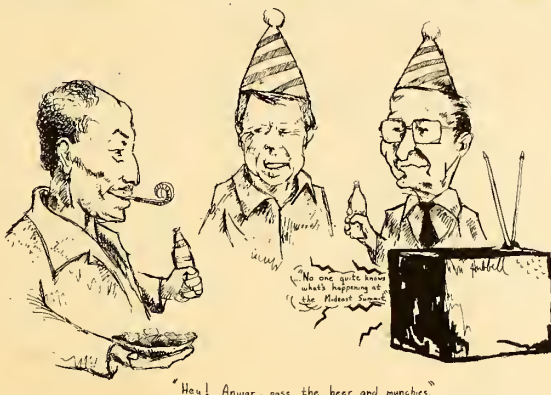 "No one quite knows
what's happening at
the Mideast Summit
"Hey! Anwar, pass the beer and munchies."